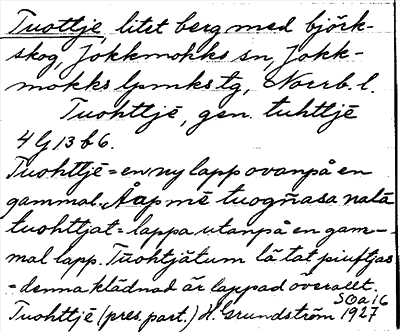 Tuottje litet berg med björk-
skog, Jokkmokks sn, Jokk-
mokks lpmks tg, Norrb. l.
Tuohttjē, gen. tuhttjē
4 G 13 b 6.
Tuohttjē = en ny lapp ovanpå en
gammal. Åapmē tuogñasa nalā
tuohttjat = lappa utanpå en gam-
mal lapp. Tuohtjātum lā tat piuftjas
= denna klädnad är lappad överallt.
SOa 16
Tuohttjē (pres. part.) H. Grundström 1927